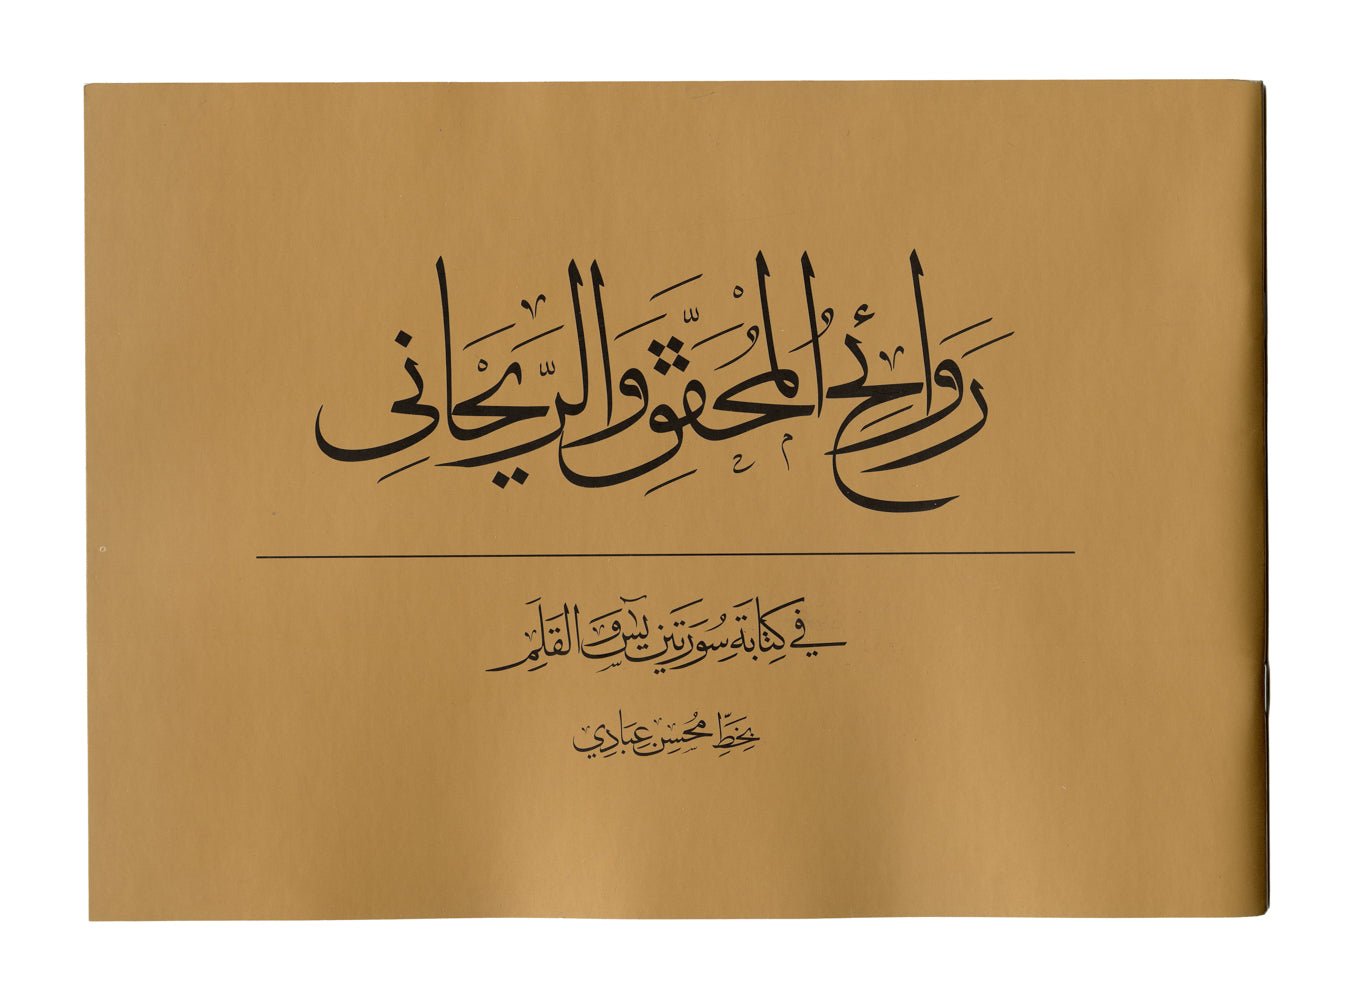 رَوَائِحُ الْمُحَقَّقِ وَالرَّيْحَانِي
في كِتَابَةِ سُورَتَين يٓس وَ القَلَمِ
بِخَطِّ مُحْسِن عِبَادِي